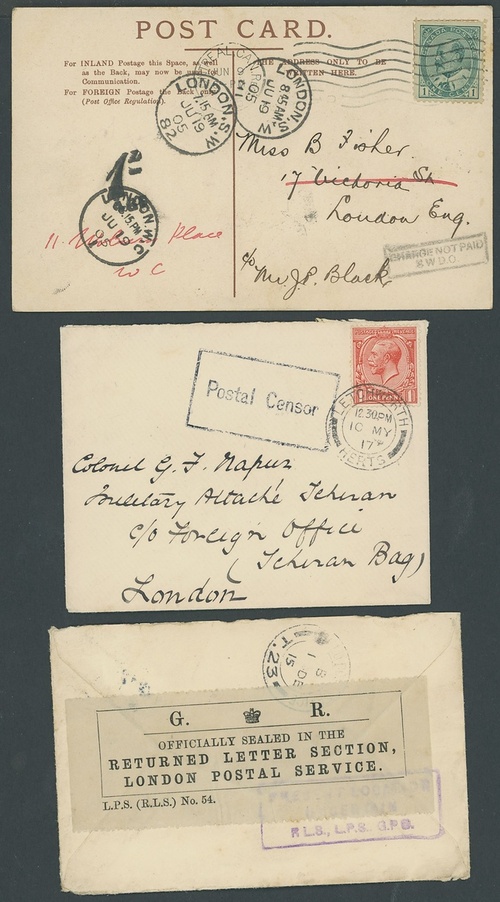 POST CARD.
For INLAND Postage this Space, as well
as the Back, may now be used for
Communication.
For FOREIGN Postage the Back only
(Post Office Regulation).
THE ADDRESS ONLY TO BE
WRITTEN HERE.
CANADA POSTAGE
1 1
LONDON, S.W
7.15 AM
JU 19
05
82
LONDON, S.W
8.45 AM
JU 19
05
Miss B Fisher
17 Victoria St
London Eng.
c/o Mr J.P. Black
CHARGE NOT PAID
S.W.D.O.
1d
LONDON. W.C
.15 PM
JU 19
05
11 Place
W C
Postal Censor
POSTAGE REVENUE
1 ONE PENNY 1
LETCHWORTH
12.30PM
10 MY
17
HERTS
Colonel G. F. Napier
Military Attaché Teheran
c/o Foreign Office
(Teheran Bag)
London
T.23
8
1 DE
15
G. R.
OFFICIALLY SEALED IN THE
RETURNED LETTER SECTION,
LONDON POSTAL SERVICE.
L.P.S. (R.L.S.) No. 54.
R.L.S., L.P.S. G.P.O.